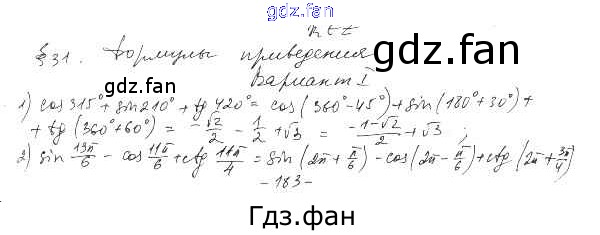 gdz.fan
gdz.fan gdz.fan
§ 31. Формулы приведения
Вариант I
1) cos 315° + sin 210° + tg 420° = cos (360° - 45°) + sin (180° + 30°) +
+ tg (360° + 60°) = -√2/2 - 1/2 + √3 = (-1-√2)/2 + √3 ;
2) sin 13π/6 - cos 11π/6 + ctg 11π/4 = sin (2π + π/6) - cos (2π - π/6) + ctg (2π + 3π/4)
- 183 -
Гдз.фан